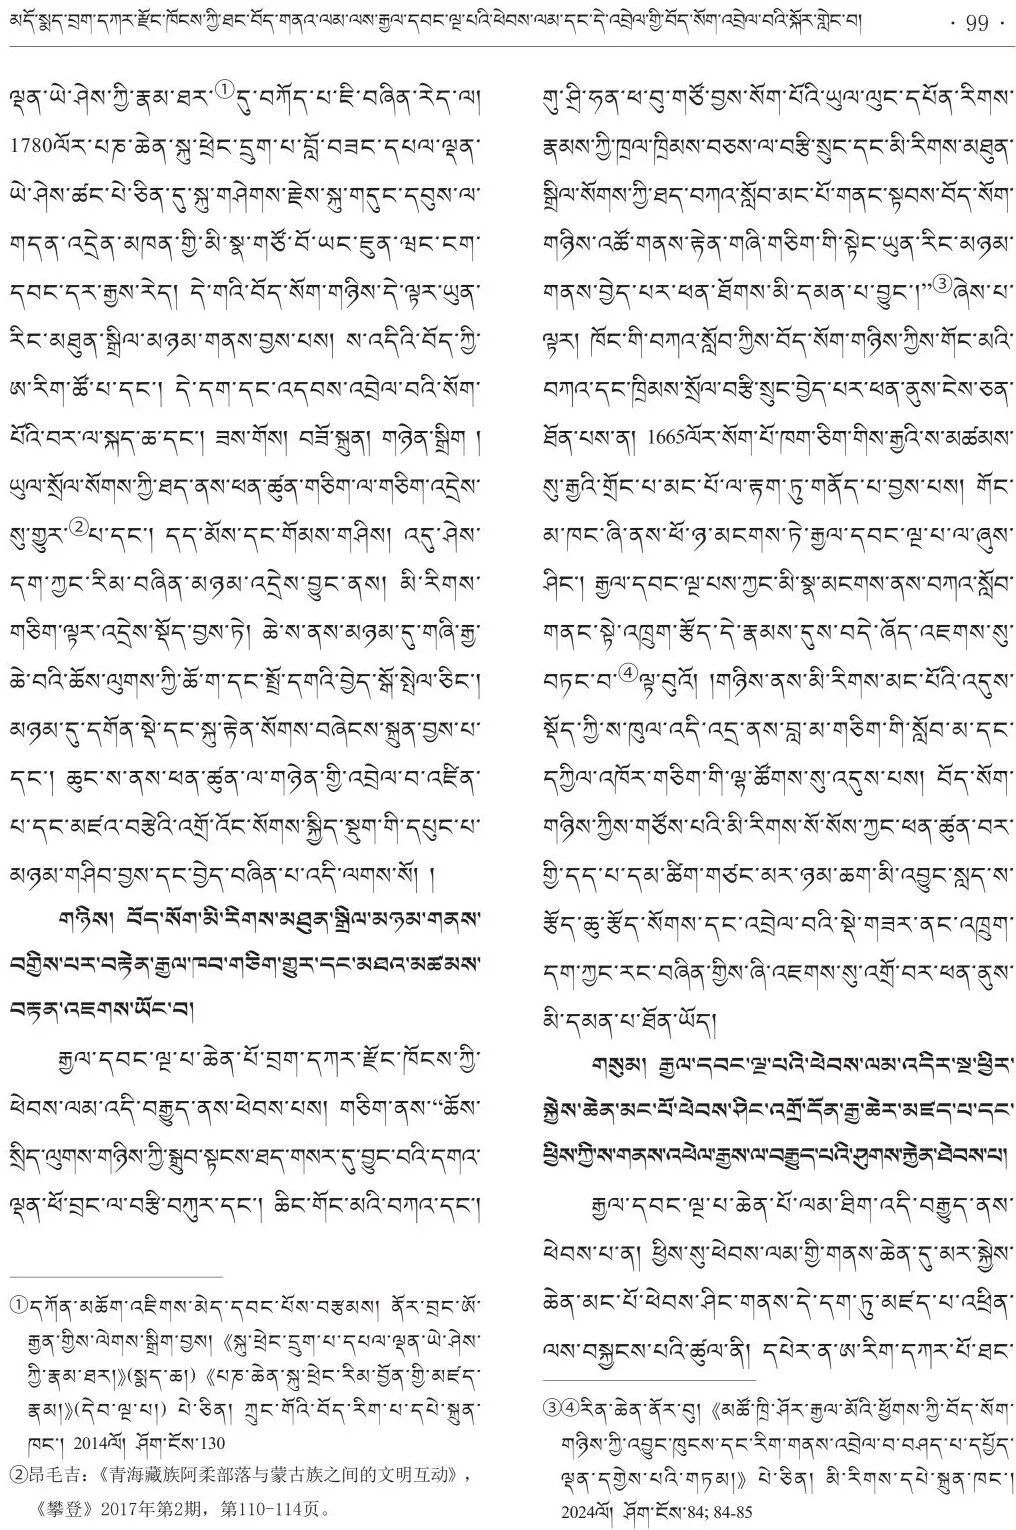 མདོ་སྨད་བྲག་དཀར་རྫོང་ཁོངས་ཀྱི་ཐང་བོད་གནའ་ལམ་ལས་རྒྱལ་དབང་ལྔ་པའི་ཕེབས་ལམ་དང་དེ་འབྲེལ་གྱི་བོད་སོག་འབྲེལ་བའི་སྐོར་གླེང་བ། · 99 ·
ལྡན་ཡེ་ཤེས་ཀྱི་རྣམ་ཐར་①དུ་བཀོད་པ་ཇི་བཞིན་རེད་ལ།
1780ལོར་པཎ་ཆེན་སྐུ་ཕྲེང་དྲུག་པ་བློ་བཟང་དཔལ་ལྡན་
ཡེ་ཤེས་ཚང་པེ་ཅིན་དུ་སྐུ་གཤེགས་རྗེས་སྐུ་གདུང་དབུས་ལ་
གདན་འདྲེན་མཁན་གྱི་མི་སྣ་གཙོ་བོ་ཡང་ཇུན་ཝང་ངག་
དབང་དར་རྒྱས་རེད། དེ་གའི་བོད་སོག་གཉིས་དེ་ལྟར་ཡུན་
རིང་མཐུན་སྒྲིལ་མཉམ་གནས་བྱས་པས། ས་འདིའི་བོད་ཀྱི་
ཨ་རིག་ཚོ་པ་དང་། དེ་དག་དང་འདབས་འབྲེལ་བའི་སོག་
པོའི་བར་ལ་སྐད་ཆ་དང་། ཟས་གོས། བཟོ་སྐྲུན། གཉེན་སྒྲིག །
ཡུལ་སྲོལ་སོགས་ཀྱི་ཐད་ནས་ཕན་ཚུན་གཅིག་ལ་གཅིག་འདྲེས་
སུ་གྱུར་②པ་དང་། དད་མོས་དང་གོམས་གཤིས། འདུ་ཤེས་
དག་ཀྱང་རིམ་བཞིན་མཉམ་འདྲེས་བྱུང་ནས། མི་རིགས་
གཅིག་ལྟར་འདྲེས་སྡོད་བྱས་ཏེ། ཆེ་ས་ནས་མཉམ་དུ་གཞི་རྒྱ་
ཆེ་བའི་ཆོས་ལུགས་ཀྱི་ཆོ་ག་དང་སྤྲོ་དགའི་བྱེད་སྒོ་སྤེལ་ཅིང་།
མཉམ་དུ་དགོན་སྡེ་དང་སྐུ་རྟེན་སོགས་བཞེངས་སྐྲུན་བྱས་པ་
དང་། ཆུང་ས་ནས་ཕན་ཚུན་ལ་གཉེན་གྱི་འབྲེལ་བ་འཛིན་
པ་དང་མཛའ་བརྩེའི་འགྲོ་འོང་སོགས་སྐྱིད་སྡུག་གི་དཔུང་པ་
མཉམ་གཤིབ་བྱས་དང་བྱེད་བཞིན་པ་འདི་ལགས་སོ། །
གཉིས། བོད་སོག་མི་རིགས་མཐུན་སྒྲིལ་མཉམ་གནས་
བགྱིས་པར་བརྟེན་རྒྱལ་ཁབ་གཅིག་གྱུར་དང་མཐའ་མཚམས་
བརྟན་འཇགས་ཡོང་བ།
རྒྱལ་དབང་ལྔ་པ་ཆེན་པོ་བྲག་དཀར་རྫོང་ཁོངས་ཀྱི་
ཕེབས་ལམ་འདི་བརྒྱུད་ནས་ཕེབས་པས། གཅིག་ནས་“ཆོས་
སྲིད་ལུགས་གཉིས་ཀྱི་སྒྲུབ་སྟངས་ཐད་གསར་དུ་བྱུང་བའི་དགའ་
ལྡན་ཕོ་བྲང་ལ་བརྩི་བཀུར་དང་། ཆིང་གོང་མའི་བཀའ་དང་།
①དཀོན་མཆོག་འཇིགས་མེད་དབང་པོས་བརྩམས། ནོར་བྲང་ཨོ་
རྒྱན་གྱིས་ལེགས་སྒྲིག་བྱས། 《སྐུ་ཕྲེང་དྲུག་པ་དཔལ་ལྡན་ཡེ་ཤེས་
ཀྱི་རྣམ་ཐར།》(སྨད་ཆ།) 《པཎ་ཆེན་སྐུ་ཕྲེང་རིམ་བྱོན་གྱི་མཛད་
རྣམ།》(དེབ་ལྔ་པ།) པེ་ཅིན། ཀྲུང་གོའི་བོད་རིག་པ་དཔེ་སྐྲུན་
ཁང་། 2014ལོ། ཤོག་ངོས་130
②昂毛吉：《青海藏族阿柔部落与蒙古族之间的文明互动》，
《攀登》2017年第2期，第110-114页。
གུ་ཤྲི་ཧན་ཕ་བུ་གཙོ་བྱས་སོག་པོའི་ཡུལ་ལུང་དཔོན་རིགས་
རྣམས་ཀྱི་ཁྲལ་ཁྲིམས་བཅས་ལ་བརྩི་སྲུང་དང་མི་རིགས་མཐུན་
སྒྲིལ་སོགས་ཀྱི་ཐད་བཀའ་སློབ་མང་པོ་གནང་སྟབས་བོད་སོག་
གཉིས་འཚོ་གནས་རྟེན་གཞི་གཅིག་གི་སྟེང་ཡུན་རིང་མཉམ་
གནས་བྱེད་པར་ཕན་ཐོགས་མི་དམན་པ་བྱུང་།”③ཞེས་པ་
ལྟར། ཁོང་གི་བཀའ་སློབ་ཀྱིས་བོད་སོག་གཉིས་ཀྱིས་གོང་མའི་
བཀའ་དང་ཁྲིམས་སྲོལ་བརྩི་སྲུང་བྱེད་པར་ཕན་ནུས་ངེས་ཅན་
ཐོན་པས་ན། 1665ལོར་སོག་པོ་ཁག་ཅིག་གིས་རྒྱའི་ས་མཚམས་
སུ་རྒྱའི་གྲོང་པ་མང་པོ་ལ་རྟག་ཏུ་གནོད་པ་བྱས་པས། གོང་
མ་ཁང་ཞི་ནས་ཕོ་ཉ་མངགས་ཏེ་རྒྱལ་དབང་ལྔ་པ་ལ་ཞུས་
ཤིང་། རྒྱལ་དབང་ལྔ་པས་ཀྱང་མི་སྣ་མངགས་ནས་བཀའ་སློབ་
གནང་སྟེ་འཁྲུག་རྩོད་དེ་རྣམས་དུས་བདེ་ཞོད་འཇགས་སུ་
བཏང་བ་④ལྟ་བུའོ། །གཉིས་ནས་མི་རིགས་མང་པོའི་འདུས་
སྡོད་ཀྱི་ས་ཁུལ་འདི་འདྲ་ནས་བླ་མ་གཅིག་གི་སློབ་མ་དང་
དཀྱིལ་འཁོར་གཅིག་གི་ལྷ་ཚོགས་སུ་འདུས་པས། བོད་སོག་
གཉིས་ཀྱིས་གཙོས་པའི་མི་རིགས་སོ་སོས་ཀྱང་ཕན་ཚུན་བར་
གྱི་དད་པ་དམ་ཚིག་གཙང་མར་ཉམ་ཆག་མི་འབྱུང་སླད་ས་
རྩོད་ཆུ་རྩོད་སོགས་དང་འབྲེལ་བའི་སྡེ་གཟར་ནང་འཁྲུག་
དག་ཀྱང་རང་བཞིན་གྱིས་ཞི་འཇགས་སུ་འགྲོ་བར་ཕན་ནུས་
མི་དམན་པ་ཐོན་ཡོད།
གསུམ། རྒྱལ་དབང་ལྔ་པའི་ཕེབས་ལམ་འདིར་སྔ་ཕྱིར་
སྐྱེས་ཆེན་མང་པོ་ཕེབས་ཤིང་འགྲོ་དོན་རྒྱ་ཆེར་མཛད་པ་དང་
ཕྱིས་ཀྱི་ས་གནས་འཕེལ་རྒྱས་ལ་བརྒྱུད་པའི་ཤུགས་རྐྱེན་ཐེབས་པ།
རྒྱལ་དབང་ལྔ་པ་ཆེན་པོ་ལམ་ཐིག་འདི་བརྒྱུད་ནས་
ཕེབས་པ་ན། ཕྱིས་སུ་ཕེབས་ལམ་གྱི་གནས་ཆེན་དུ་མར་སྐྱེས་
ཆེན་མང་པོ་ཕེབས་ཤིང་གནས་དེ་དག་ཏུ་མཛད་པ་འཕྲིན་
ལས་བསྐྱངས་པའི་ཚུལ་ནི། དཔེར་ན་ཨ་རིག་དཀར་པོ་ཐང་
③④རིན་ཆེན་ནོར་བུ། 《མཚོ་ཁྲི་ཤོར་རྒྱལ་མོའི་ཕྱོགས་ཀྱི་བོད་སོག་
གཉིས་ཀྱི་འབྱུང་ཁུངས་དང་རིག་གནས་འབྲེལ་བ་བཤད་པ་དཔྱོད་
ལྡན་དགྱེས་པའི་གཏམ།》 པེ་ཅིན། མི་རིགས་དཔེ་སྐྲུན་ཁང་།
2024ལོ། ཤོག་ངོས་84; 84-85